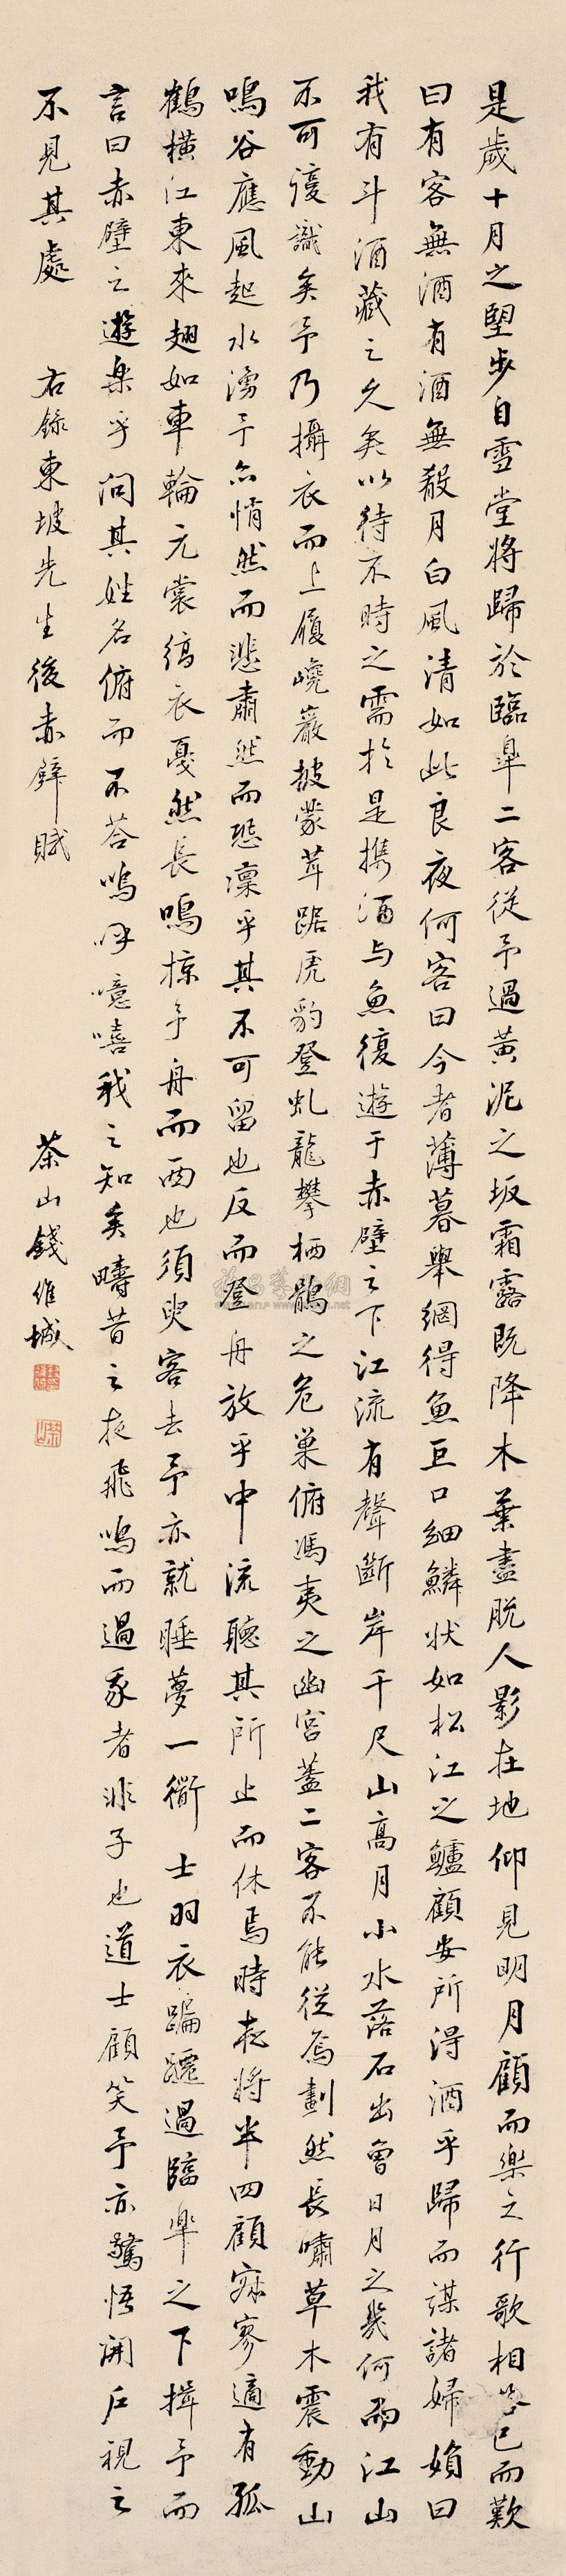 是歲十月之望步自雪堂將歸於臨皋二客從予過黃泥之坂霜露既降木葉盡脫人影在地仰見明月顧而樂之行歌相答已而歎
曰有客無酒有酒無殽月白風清如此良夜何客曰今者薄暮舉網得魚巨口細鱗狀如松江之鱸顧安所得酒乎歸而謀諸婦婦曰
我有斗酒藏之久矣以待不時之需於是携酒与魚復遊于赤壁之下江流有聲斷岸千尺山高月小水落石出曾日月之幾何而江山
不可復識矣予乃攝衣而上履巉巖披蒙茸踞虎豹登虬龍攀栖鶻之危巢俯馮夷之幽宮蓋二客不能從焉劃然長嘯草木震動山
鳴谷應風起水湧予亦悄然而悲肅然而恐凜乎其不可留也反而登舟放乎中流聽其所止而休焉時夜將半四顧寂寥適有孤
鶴橫江東來翅如車輪元裳縞衣戛然長鳴掠予舟而西也須臾客去予亦就睡夢一衟士羽衣蹁躚過臨皋之下揖予而
言曰赤壁之遊樂乎問其姓名俯而不荅嗚呼噫嘻我之知矣疇昔之夜飛鳴而過我者非子也道士顧笑予亦驚悟開戶視之
不見其處 右錄東坡先生後赤壁賦 茶山錢維城